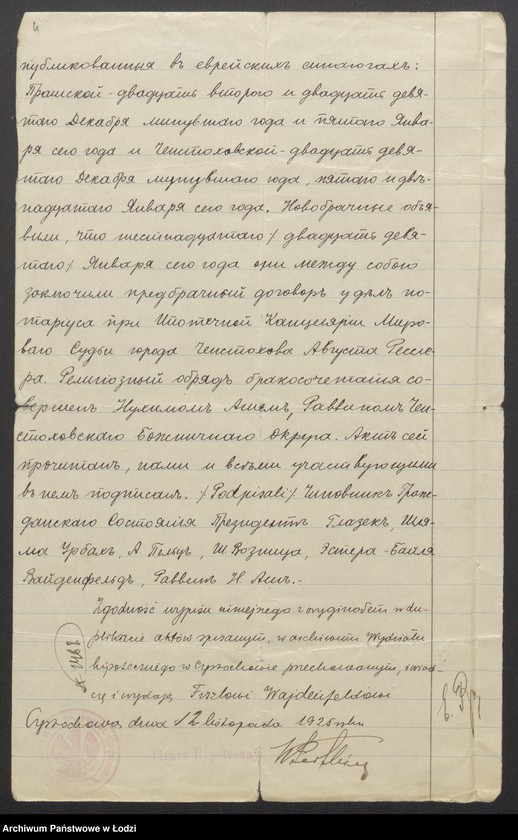 публикованныя въ еврейскихъ синагогахъ:
Пражской - двадцать второго и двадцать девя-
таго Декабря минувшаго года и пятаго Янва-
ря сего года и Ченстоховской - двадцать девя-
таго Декабря минувшаго года, пятаго и двѣ-
надцатаго Января сего года. Новобрачные объя-
вили, что шестнадцатаго / двадцать девя-
таго / Января сего года они между собою
заключили предбрачный договоръ у дѣлъ но-
таріуса при Ипотечной Канцеляріи Миро-
ваго Судьи города Ченстохова Августа Ресле-
ра. Религіозный обрядъ бракосочетанія со-
вершенъ Нухимомъ Ашемъ, Раввиномъ Чен-
стоховскаго Божничнаго Округа. Актъ сей
прочитанъ, нами и всѣми участвующими
въ немъ подписанъ. / Podpisali / Чиновникъ Граж-
данскаго Состоянія Президентъ Глазекъ, Шля-
ма Урбахъ, А Пельцъ, Ш. Возница, Эстера - Байля
Вайденфельдъ, Раввинъ Н. Ашъ.-
Zgodność wypisu niniejszego z oryginałem w du-
plikacie aktów spisanym, w archiwum Wydziału
hipotecznego w Częstochowie przechowanym, świad-
czę i wydaję Wajdenfeldowi
Częstochowa, dnia 12 listopada 1925 roku
Archiwum Państwowe w Łodzi